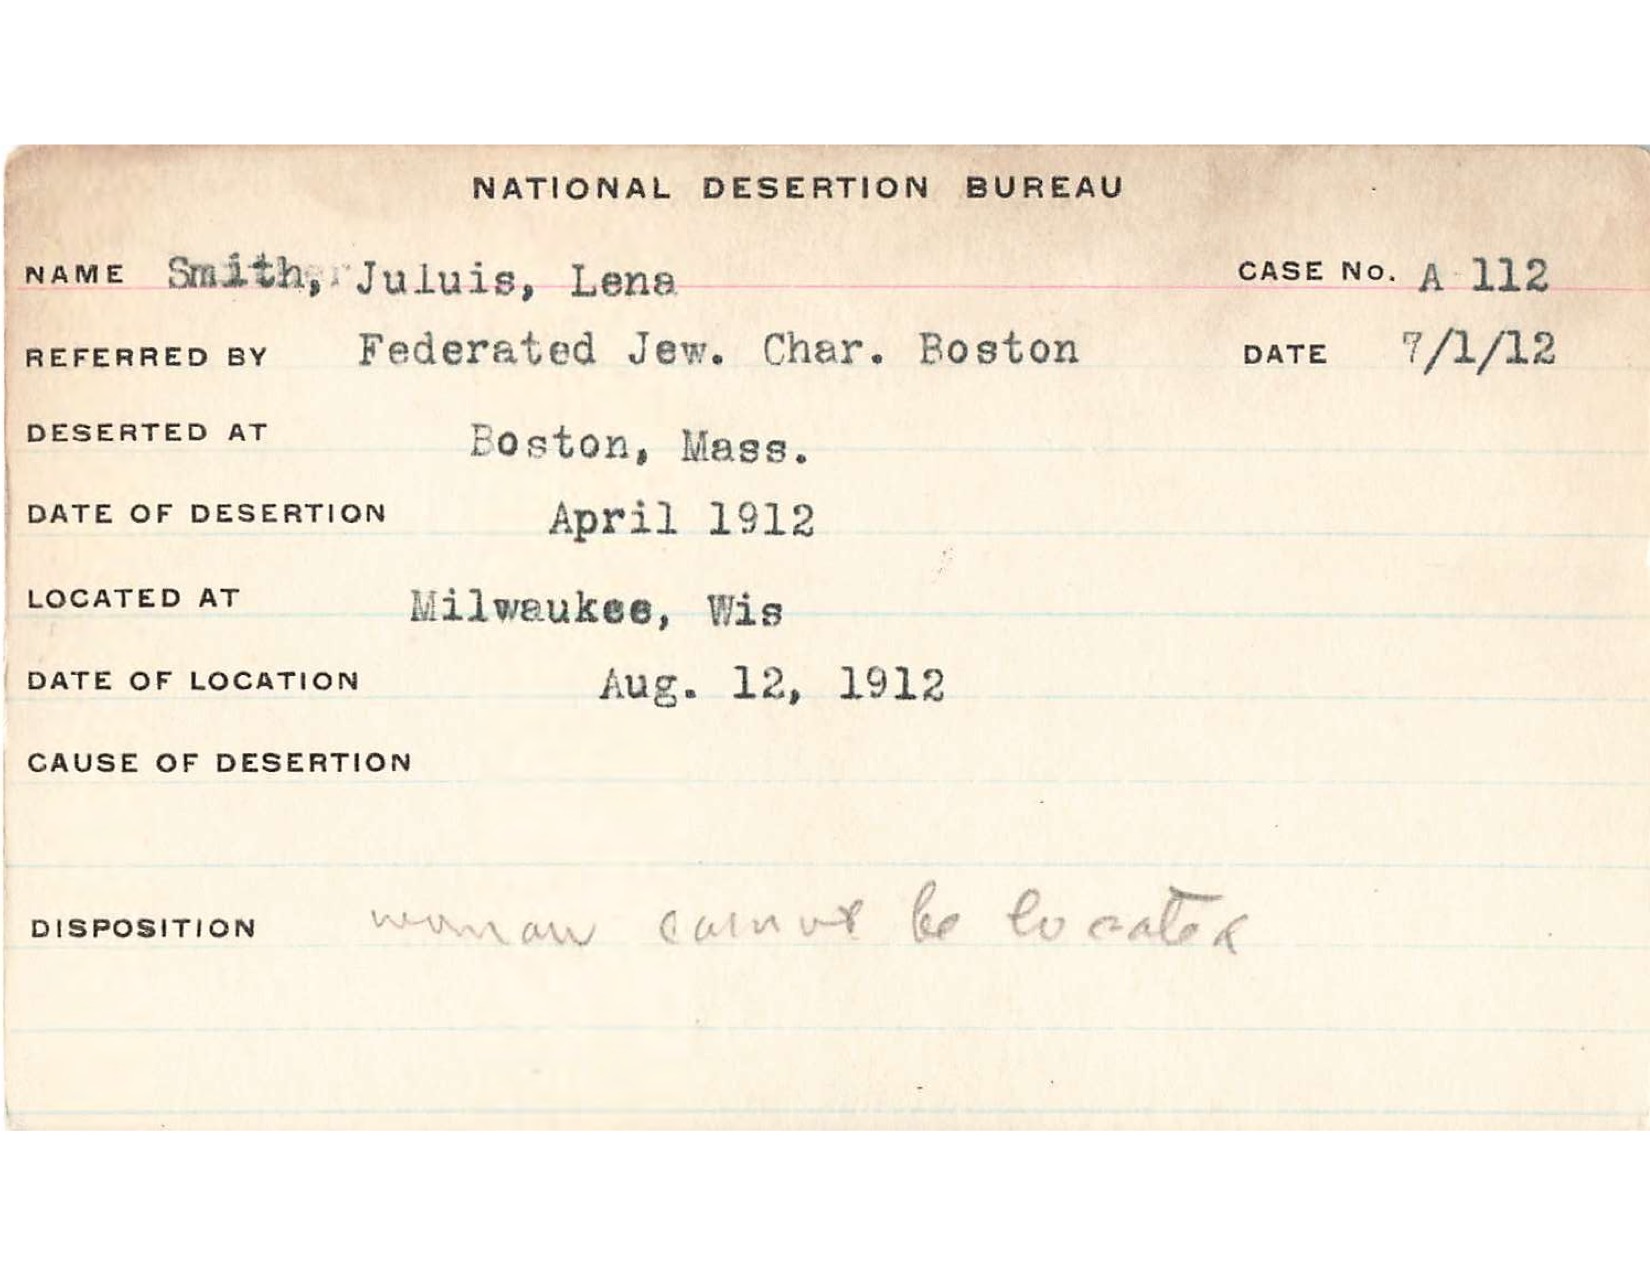 NATIONAL DESERTION BUREAU
NAME Smith, Juluis, Lena CASE No. A 112
REFERRED BY Federated Jew. Char. Boston DATE 7/1/12
DESERTED AT Boston, Mass.
DATE OF DESERTION April 1912
LOCATED AT Milwaukee, Wis
DATE OF LOCATION Aug. 12, 1912
CAUSE OF DESERTION
DISPOSITION woman cannot be located